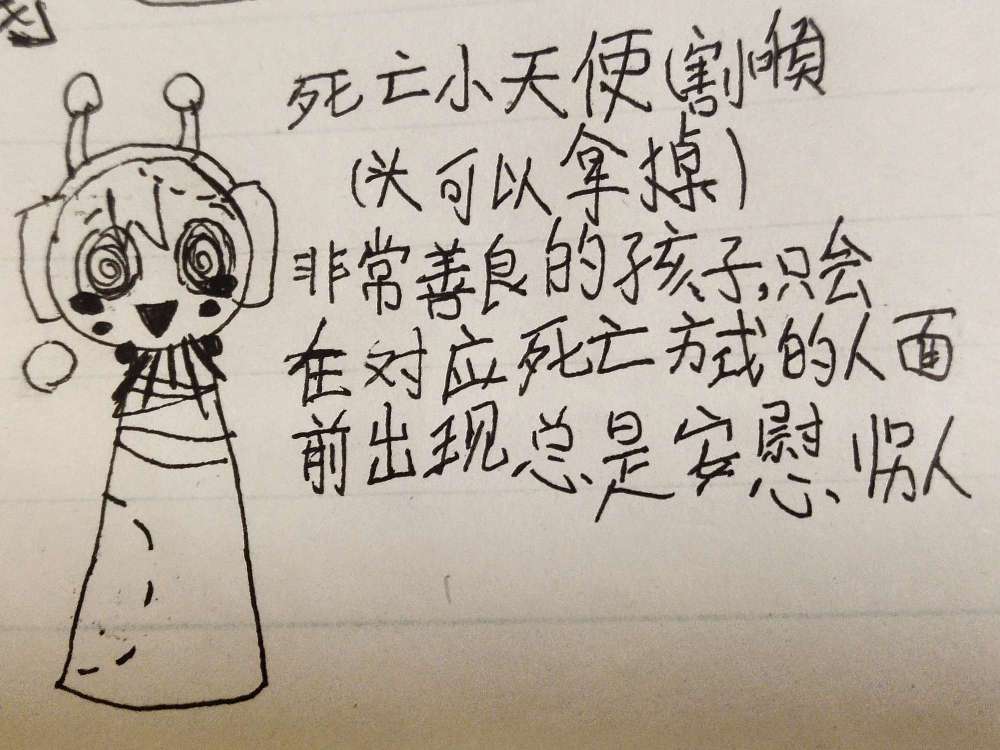 死亡小天使(割喉
(头可以拿掉)
非常善良的孩子,只会
在对应死亡方式的人面
前出现总是安慰别人